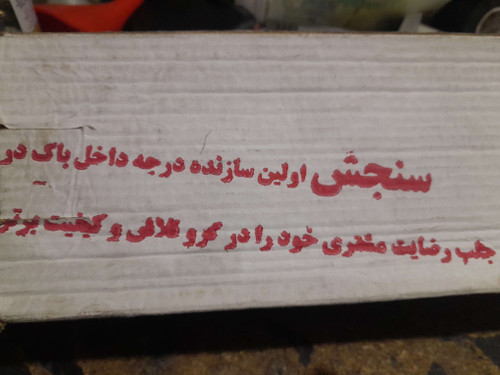 سنجش اولین سازنده درجه داخل باک در
جلب رضایت مشتری خود را در گرو تلاش و کیفیت برتر